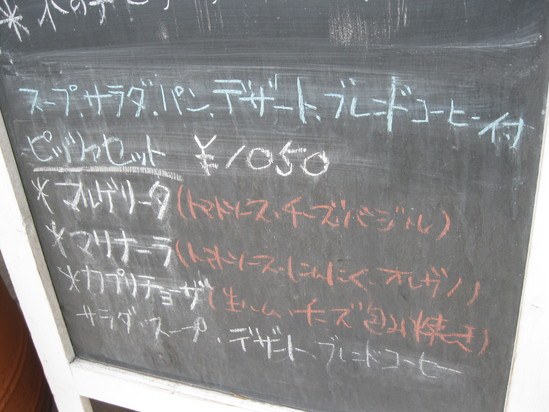 スープ、サラダ、パン、デザート、ブレンドコーヒー付
ピッツァセット ¥1050
*マルゲリータ(トマトソース、チーズ、バジル)
*マリナーラ(トマトソース、にんにく、オレガノ)
*カプリチョーザ(生ハム、チーズ包み焼き)
サラダ、スープ、デザート、ブレンドコーヒー